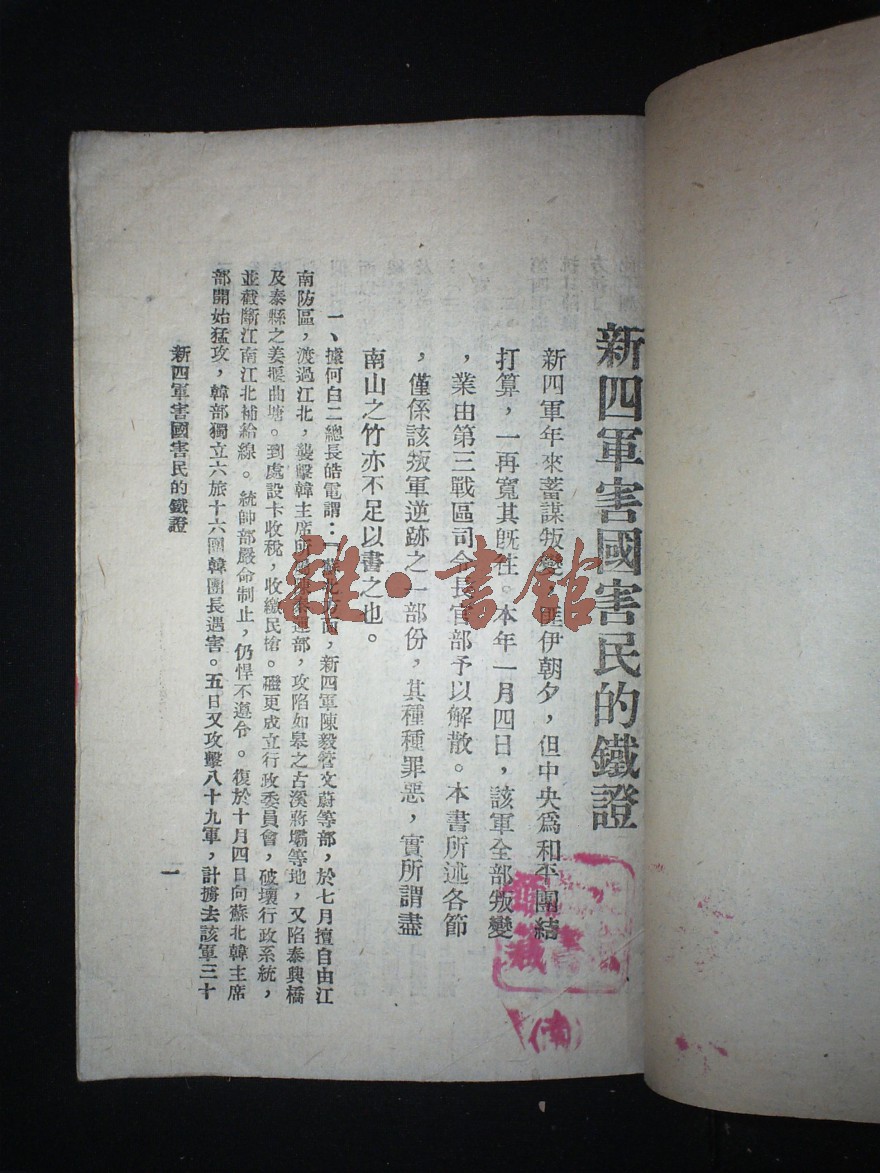 新四軍害國害民的鐵證
新四軍年來蓄謀叛變，匪伊朝夕，但中央爲和平團結
打算，一再寬其旣往。本年一月四日，該軍全部叛變
，業由第三戰區司令長官部予以解散。本書所述各節
，僅係該叛軍逆跡之一部份，其種種罪惡，實所謂盡
南山之竹亦不足以書之也。
一、據何白二總長皓電謂：「蘇北方面，新四軍陳毅管文蔚等部，於七月擅自由江
南防區，渡過江北，襲擊韓主席所部，攻陷如皋之古溪蔣壩等地，又陷泰興橋
及泰縣之姜堰曲塘。到處設卡收稅，收繳民槍。繼更成立行政委員會，破壞行政系統，
並截斷江南江北補給線。統帥部嚴命制止，仍悍不遵令。復於十月四日向蘇北韓主席
部開始猛攻，韓部獨立六旅十六團韓團長遇害。五日又攻擊八十九軍，計擄去該軍三十
新四軍害國害民的鐵證
一
雜·書館
藏
(南)